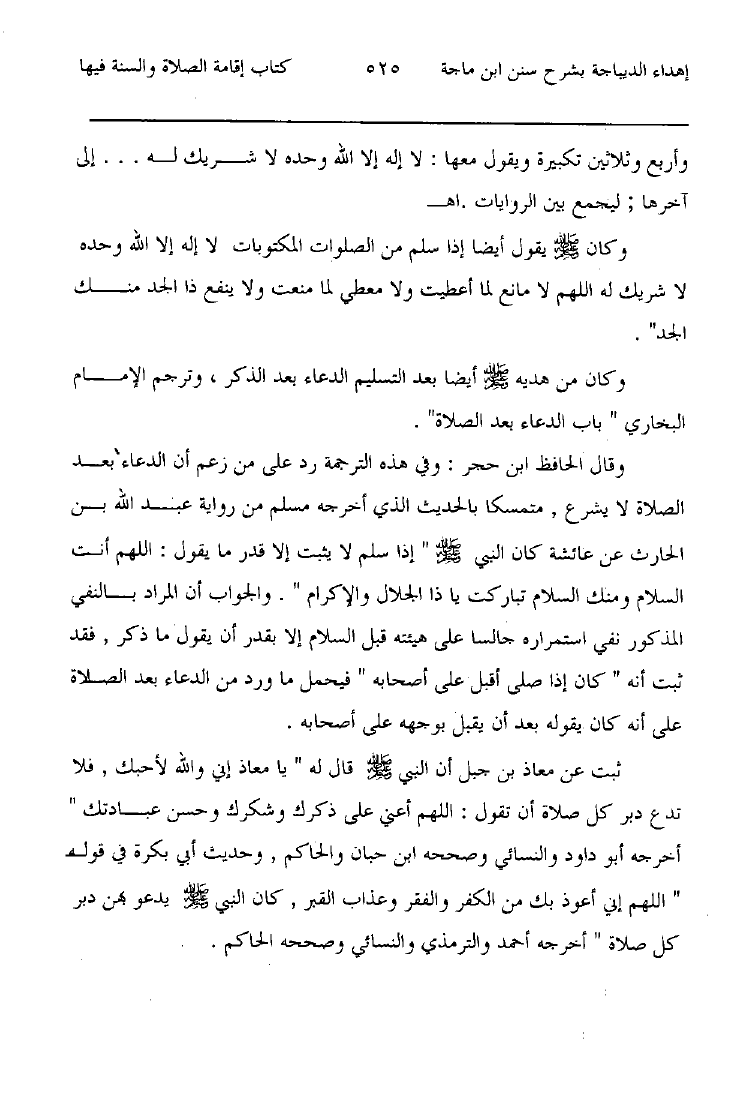 إهداء الديباجة بشرح سنن ابن ماجة ٥٢٥ كتاب إقامة الصلاة والسنة فيها
وأربع وثلاثين تكبيرة ويقول معها : لا إله إلا الله وحده لا شريك له . . . إلى
آخرها ; ليجمع بين الروايات .اهـ
وكان ﷺ يقول أيضا إذا سلم من الصلوات المكتوبات لا إله إلا الله وحده
لا شريك له اللهم لا مانع لما أعطيت ولا معطي لما منعت ولا ينفع ذا الجد منك
الجد" .
وكان من هديه ﷺ أيضا بعد التسليم الدعاء بعد الذكر ، وترجم الإمام
البخاري " باب الدعاء بعد الصلاة" .
وقال الحافظ ابن حجر : وفي هذه الترجمة رد على من زعم أن الدعاء بعد
الصلاة لا يشرع , متمسكا بالحديث الذي أخرجه مسلم من رواية عبد الله بن
الحارث عن عائشة كان النبي ﷺ " إذا سلم لا يثبت إلا قدر ما يقول : اللهم أنت
السلام ومنك السلام تباركت يا ذا الجلال والإكرام " . والجواب أن المراد بالنفي
المذكور نفي استمراره جالسا على هيئته قبل السلام إلا بقدر أن يقول ما ذكر , فقد
ثبت أنه " كان إذا صلى أقبل على أصحابه " فيحمل ما ورد من الدعاء بعد الصلاة
على أنه كان يقوله بعد أن يقبل بوجهه على أصحابه .
ثبت عن معاذ بن جبل أن النبي ﷺ قال له " يا معاذ إني والله لأحبك , فلا
تدع دبر كل صلاة أن تقول : اللهم أعني على ذكرك وشكرك وحسن عبادتك "
أخرجه أبو داود والنسائي وصححه ابن حبان والحاكم , وحديث أبي بكرة في قوله
" اللهم إني أعوذ بك من الكفر والفقر وعذاب القبر , كان النبي ﷺ يدعو بهن دبر
كل صلاة " أخرجه أحمد والترمذي والنسائي وصححه الحاكم .